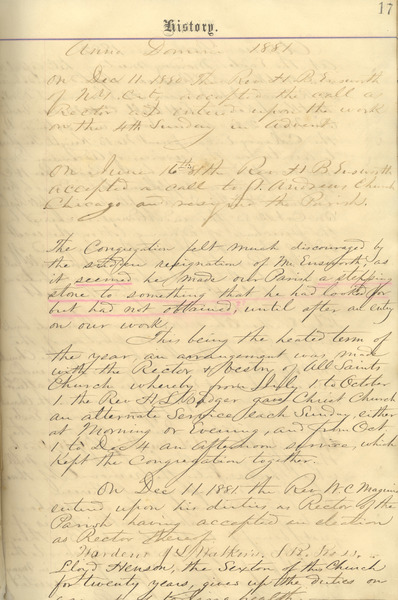 17
History.
Anno Domini 1881
On Dec 11. 1880 The Rev H. B. Ensworth
of N. Y. City accepted the call as
Rector and entered upon the work
on the 4th Sunday in Advent.
On June 16th 81 the Rev H B Ensworth
accepted a call to St. Andrews Church
Chicago and resigned the Parish.
The Congregation felt much discouraged by
the sudden resignation of Mr Ensworth, as
it seemed he made our Parish a stepping
stone to something that he had looked for
but had not obtained, until after an entry
on our work.
This being the heated term of
the year, an arrangement was made
with the Rector & Vestry of All Saints
Church whereby from July 1 to October
1 the Rev H. L. Badger gave Christ Church
an alternate Service each Sunday, either
at Morning or Evening, and from Oct
1 to Dec 4 an afternoon service, which
kept the Congregation together.
On Dec 11. 1881 the Rev W. C.
entered upon his duties as Rector of the
Parish having accepted an election
as Rector thereof.
Wardens J. S. Watkins, J. R.
Lloyd Henson, the Sexton of the Church
for twenty years, gives up the duties on
health